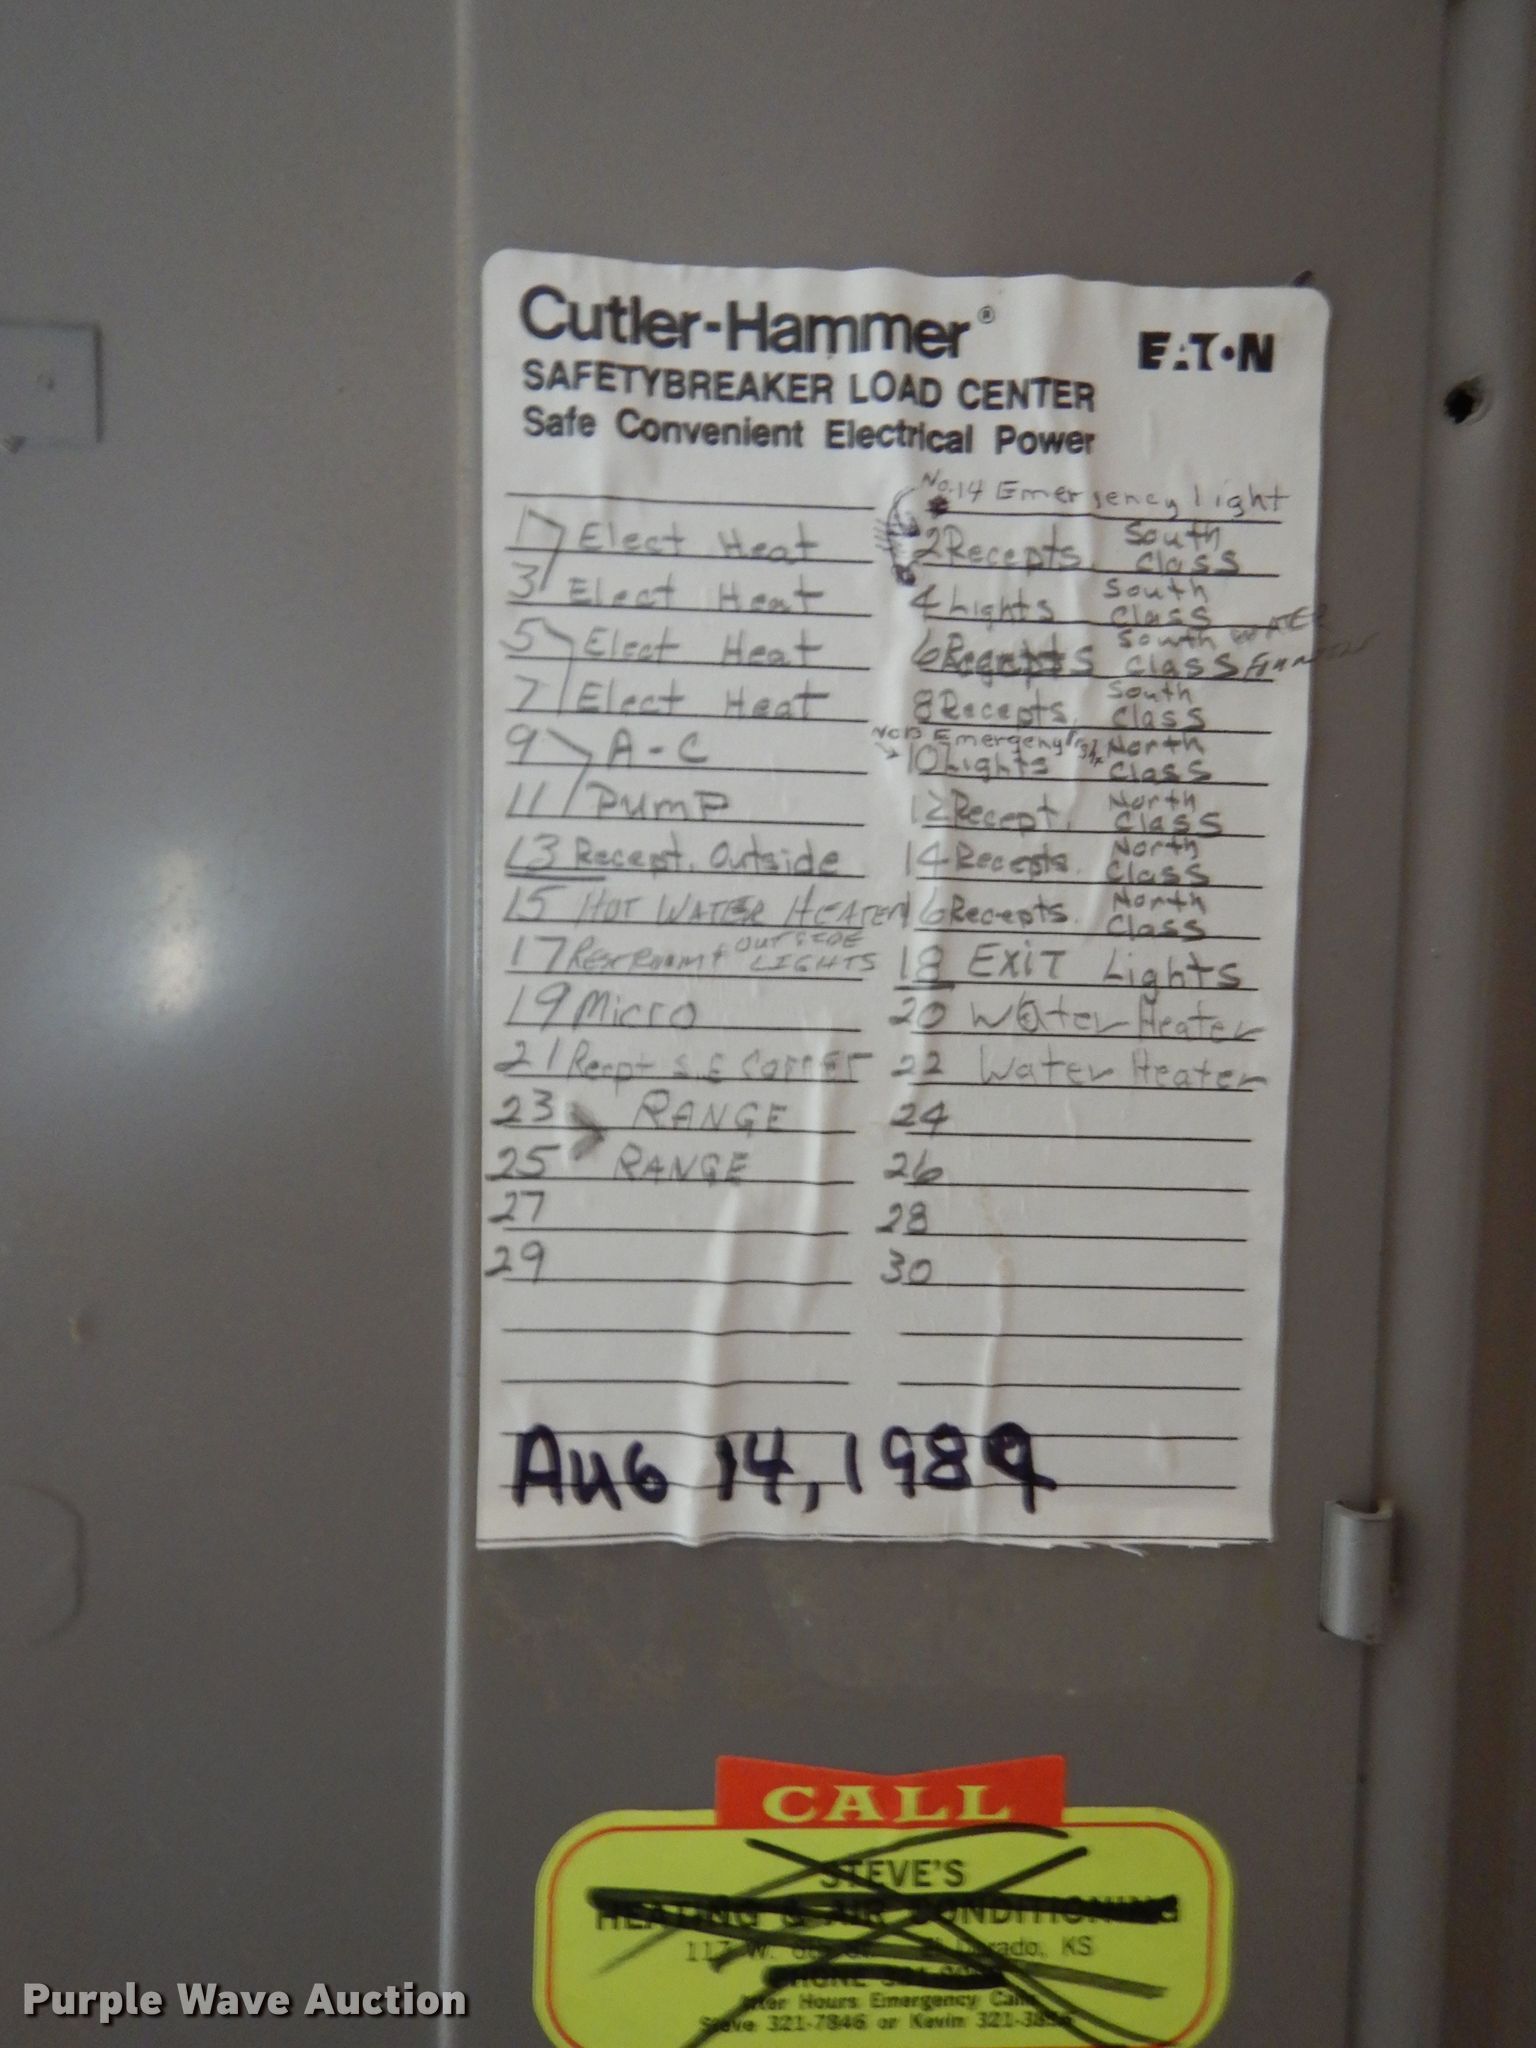 Cutler-Hammer®
EATON
SAFETYBREAKER LOAD CENTER
Safe Convenient Electrical Power
No.14 Emergency light
1 Elect Heat
2 Recepts. South Class
3 Elect Heat
4 Lights South Class
5 Elect Heat
6 South Class WATER
7 Elect Heat
8 Recepts. South Class
9 A-C
Emergeny
10 Lights North Class
11 PUMP
12 Recept. North Class
13 Recept. Outside
14 Recepts. North Class
15 HOT WATER HEATER
16 Recepts. North Class
17 OUTSIDE LIGHTS
18 EXIT Lights
19 Micro
20 Water Heater
21 Recpt S.E
22 Water Heater
23 RANGE
24
25 RANGE
26
27
28
29
30
AUG 14, 1989
CALL
STEVE'S
HEATING & AIR CONDITIONING
117 W. El Dorado, KS
PHONE
After Hours Emergency Call
Steve 321-7846 or Kevin
Purple Wave Auction